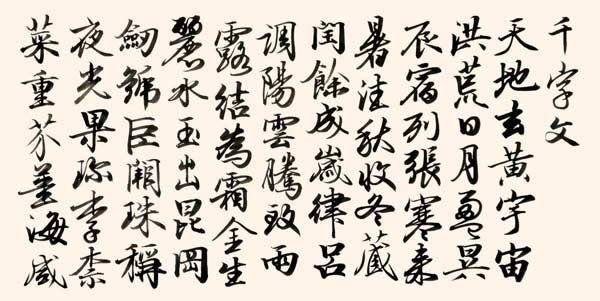 千字文
天地玄黃宇宙
洪荒日月盈昃
辰宿列張寒来
暑往秋收冬藏
閏餘成歲律呂
調陽雲騰致雨
露結為霜金生
麗水玉出崑岡
劍號巨闕珠稱
夜光果珍李柰
菜重芥薑海咸